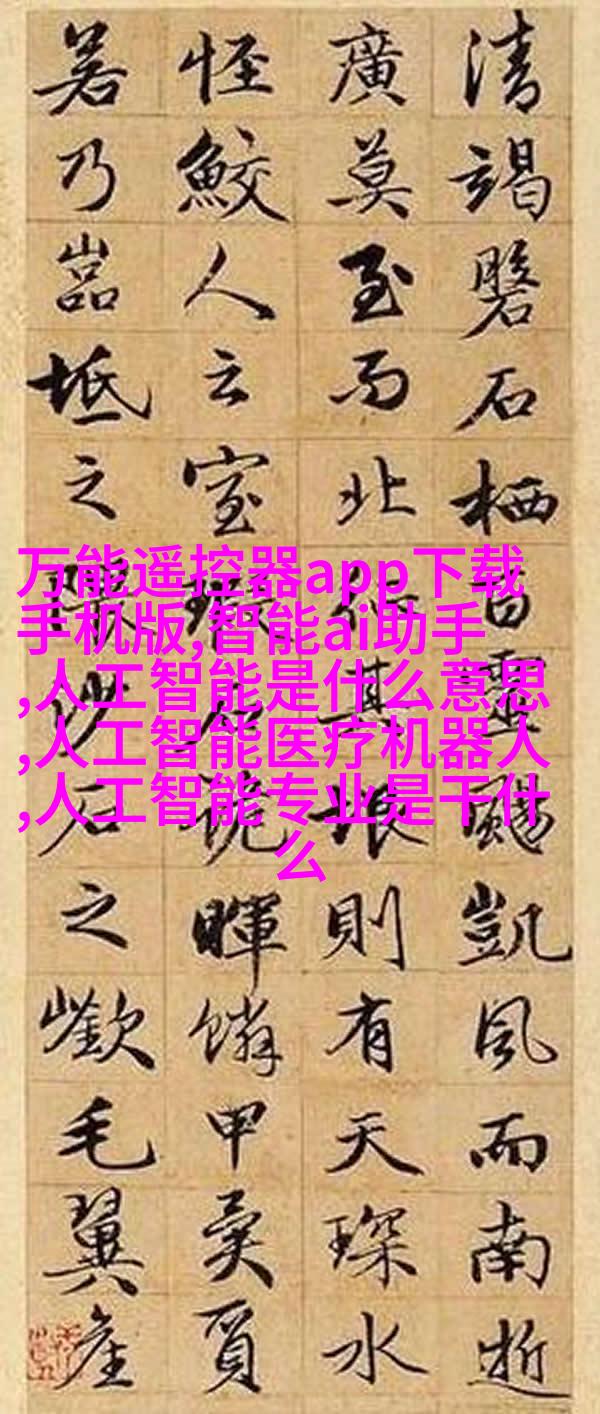 清竭磐石栖百靈颺凱風而南逝
廣莫至而北其垠則有天琛水
怪鮫人之室瑕石詭暉鱗甲異質
若乃嵓坻之隈沙石之嶔毛翼產
万能遥控器app下载
手机版,智能ai助手
,人工智能是什么意思
,人工智能医疗机器人
,人工智能专业是干什
么